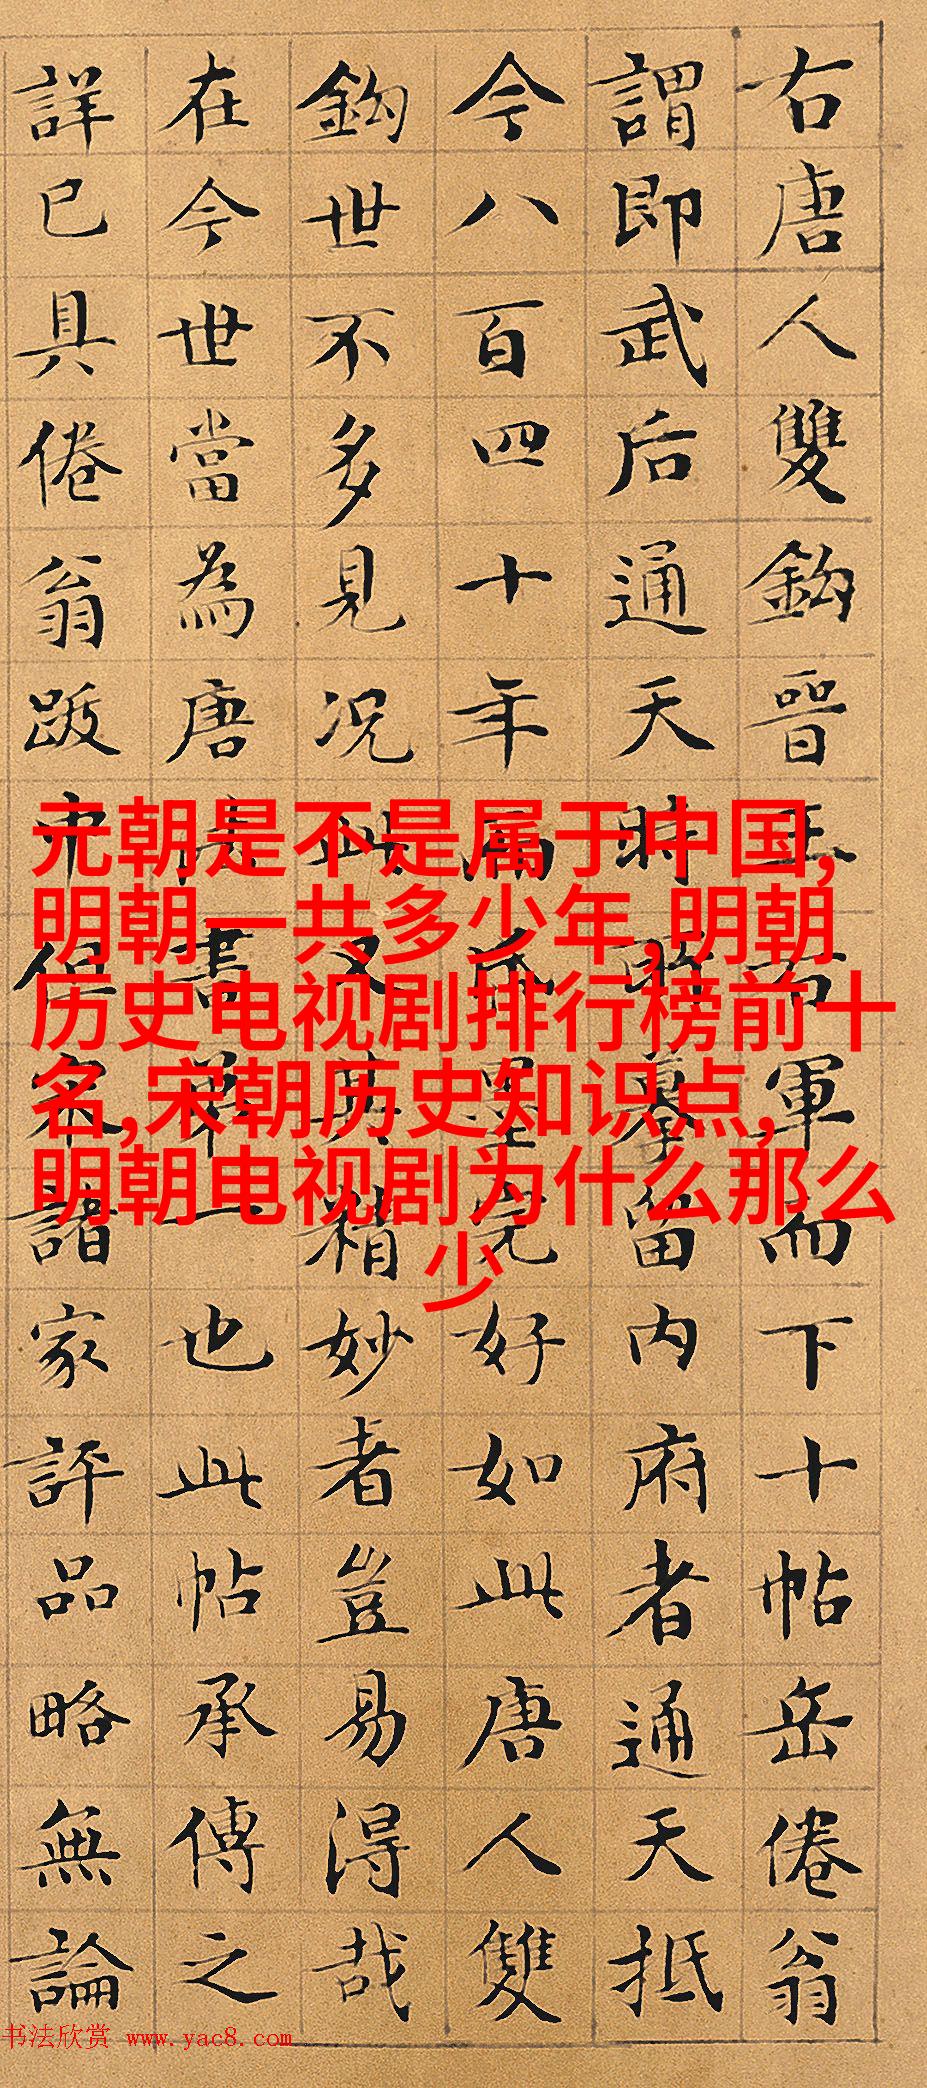 右唐人雙鈎晉王右軍而下十帖岳倦翁
謂即武后通天時所摹留内府者通天抵
今八百四十年墨完好如此唐人雙
鈎世不多見况此又其精妙者豈易得哉
在今世當為唐法書第一也此帖承傳之
詳已具倦翁跋中但諸家評品略無論
元朝是不是属于中国,
明朝一共多少年,明朝
历史电视剧排行榜前十
名,宋朝历史知识点,
明朝电视剧为什么那么
少
书法欣赏 www.yac8.com